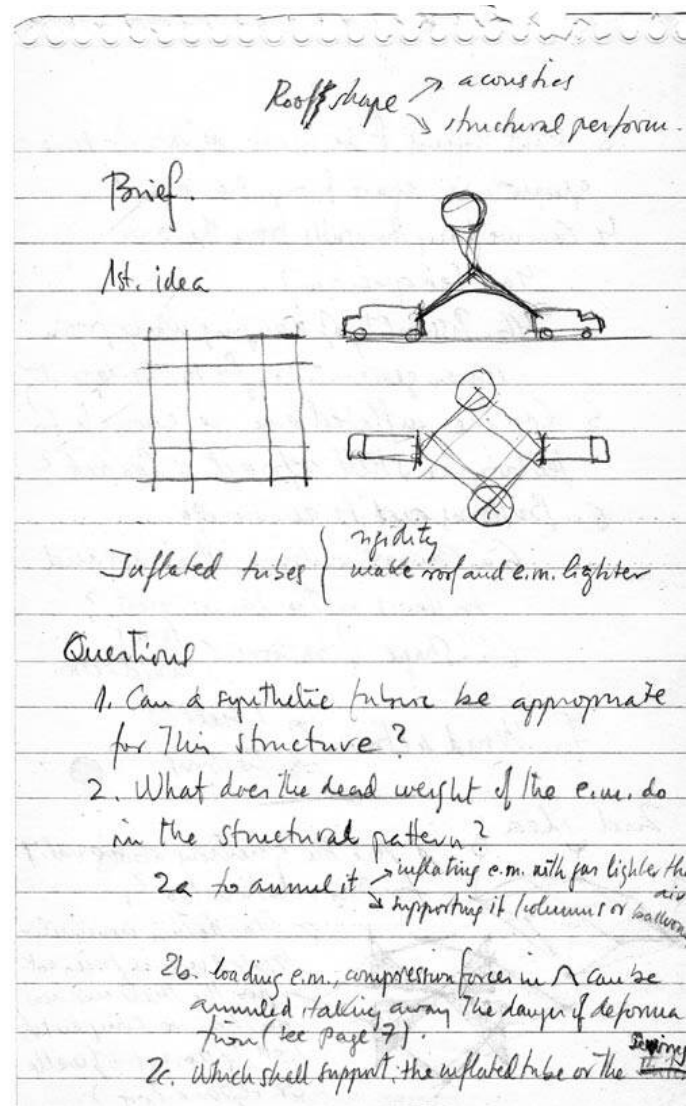 Roof shape ↗ acoustics
↘ structural perform.
Brief.
1st. idea
Inflated tubes { rigidity
make roof and e.m. lighter
Questions
1. Can a synthetic be appropriate
for this structure?
2. What does the dead weight of the e.m. do
in the structural pattern?
2a to annul it ↗ inflating e.m. with gas lighter tha
air
↘ supporting it /columns or balloons
2b. loading e.m., compression forces in ∧ can be
annuled taking away the danger of deforma
tion (see page 7).
2c. Which shall support, the inflated tube or the